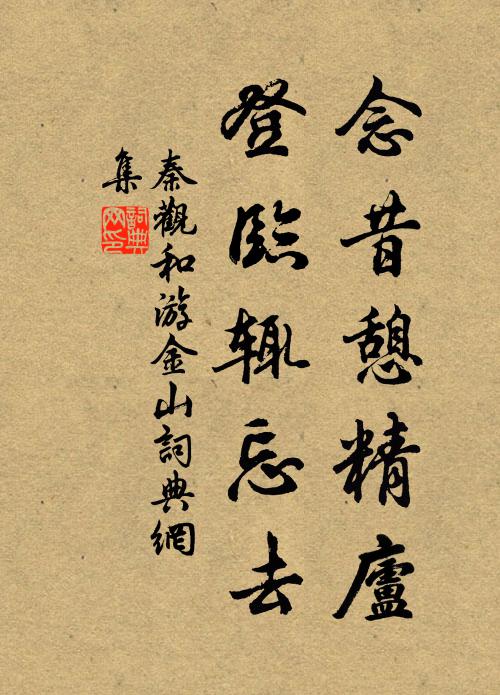 念昔憩精廬
登臨輒忘去
秦觀和游金山詞典網
集
詞典网印